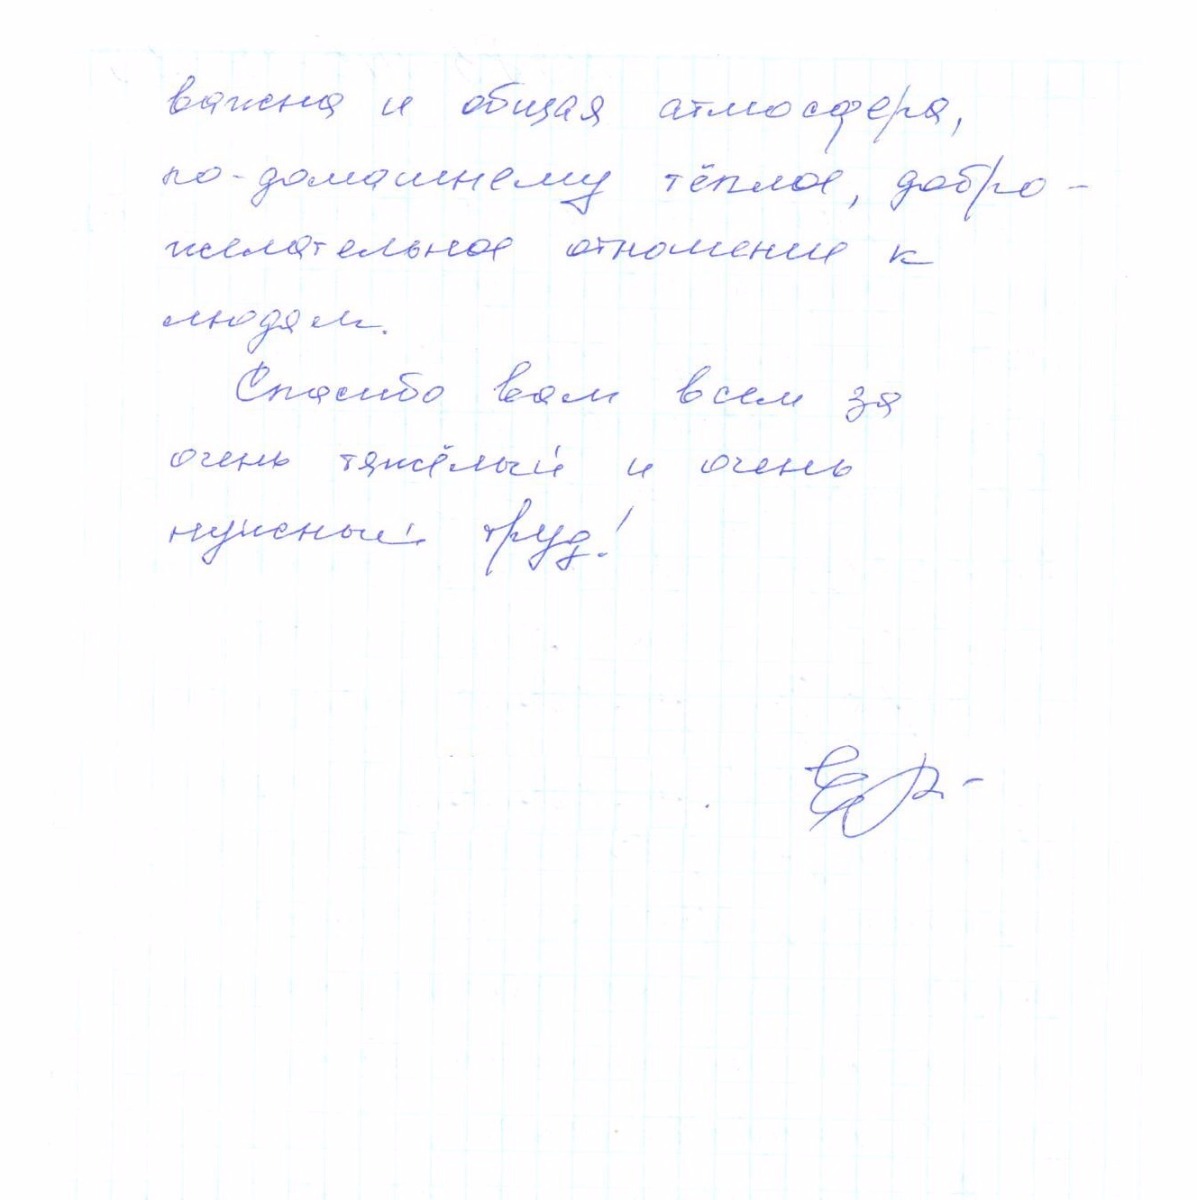 важна и общая атмосфера,
по-домашнему тёплое, добро-
желательное отношение к
людям.
Спасибо вам всем за
очень тяжёлый и очень
нужный труд!